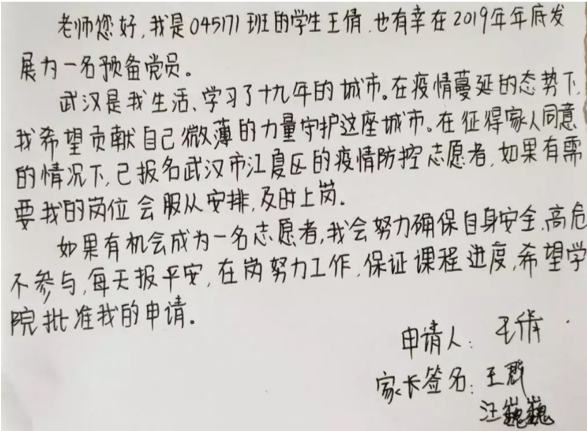 老师您好,我是045171班的学生王倩,也有幸在2019年年底发
展为一名预备党员。
武汉是我生活、学习了十九年的城市。在疫情蔓延的态势下,
我希望贡献自己微薄的力量守护这座城市。在征得家人同意
的情况下,已报名武汉市江夏区的疫情防控志愿者,如果有需
要我的岗位会服从安排,及时上岗.
如果有机会成为一名志愿者,我会努力确保自身安全,高危
不参与,每天报平安,在岗努力工作,保证课程进度,希望学
院批准我的申请.
申请人:王倩
家长签名:王群
汪巍巍